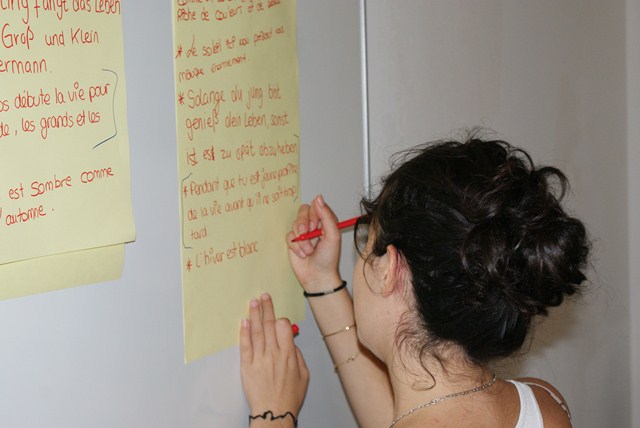 fängt das Leben
Groß und Klein
ermann.
os débute la vie pour
de, les grands et les
est sombre comme
automne.
de couleurs et de
* Le soleil
manque énormement.
* Solange du jung bist
genieß dein Leben, sonst
ist es zu spät abzuheben
* Pendant que tu es jeune profite
de la vie avant qu'il ne soit trop
tard
* L'hiver est blanc